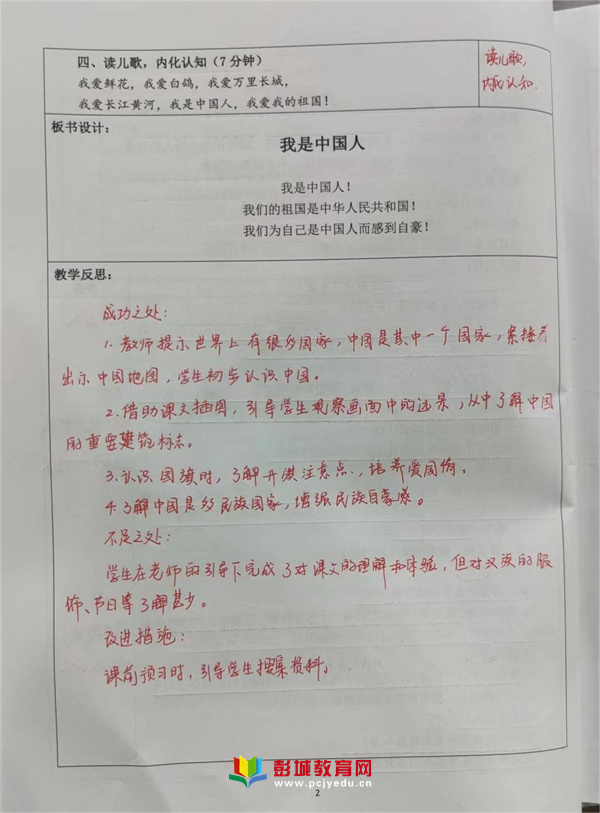 四、读儿歌，内化认知（7分钟）
我爱鲜花，我爱白鸽，我爱万里长城，
我爱长江黄河，我是中国人，我爱我的祖国！
读儿歌，
内化认知.
板书设计：
我是中国人
我是中国人！
我们的祖国是中华人民共和国！
我们为自己是中国人而感到自豪！
教学反思：
成功之处：
1.教师提示世界上有很多国家，中国是其中一个国家，紧接着
出示中国地图，学生初步认识中国。
2.借助课文插图，引导学生观察画面中的远景，从中了解中国
的重要建筑标志。
3.认识国旗时，了解升旗注意点，培养爱国情。
4.了解中国是多民族国家，增强民族自豪感。
不足之处：
学生在老师的引导下完成了对课文的理解和体验，但对汉族的服
饰、节日等了解甚少。
改进措施：
课前预习时，引导学生搜集资料。
彭城教育网
www.pcjyedu.cn
2